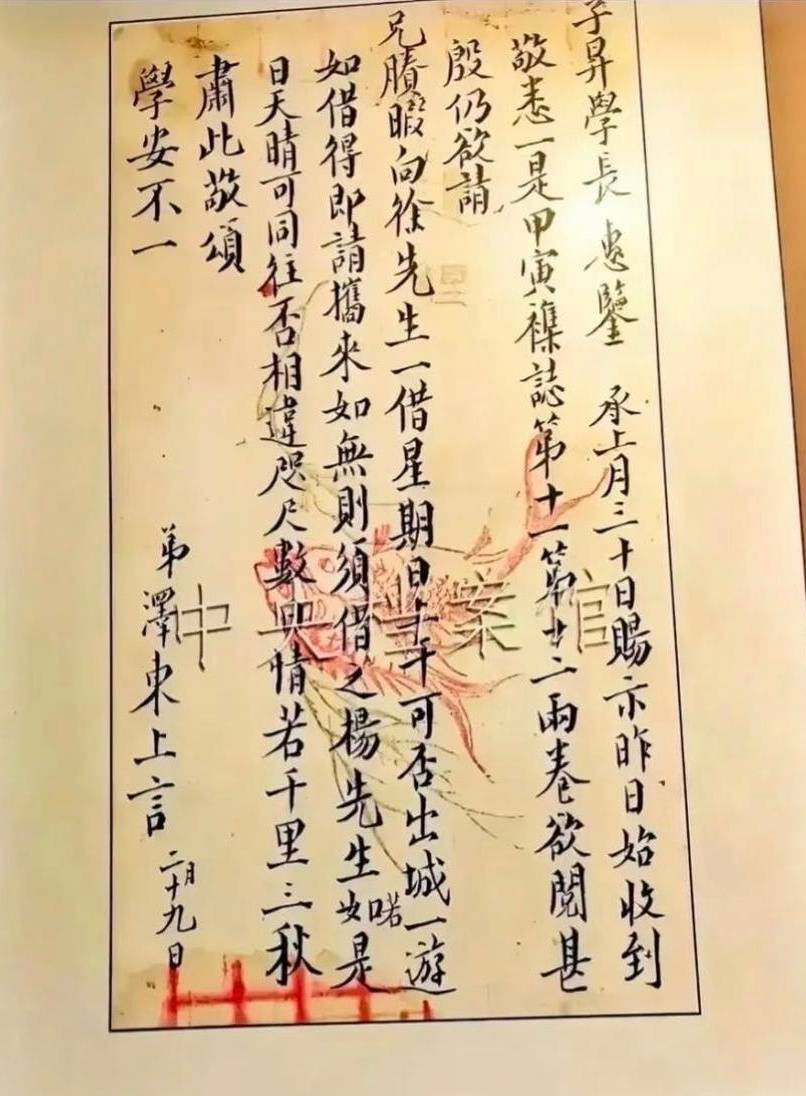 子昇學長 惠鑒 承上月三十日賜示昨日始收到
敬悉一是甲寅襍誌第十一第十二兩卷欲閱甚
殷仍欲請
兄賸暇向徐先生一借星期日上午可否出城一游
如借得即請攜來如無則須借之楊先生是
日天晴可同往否相違咫尺數日情若千里三秋
肅此敬頌
學安不一
弟澤東上言 二月十九日
中央案